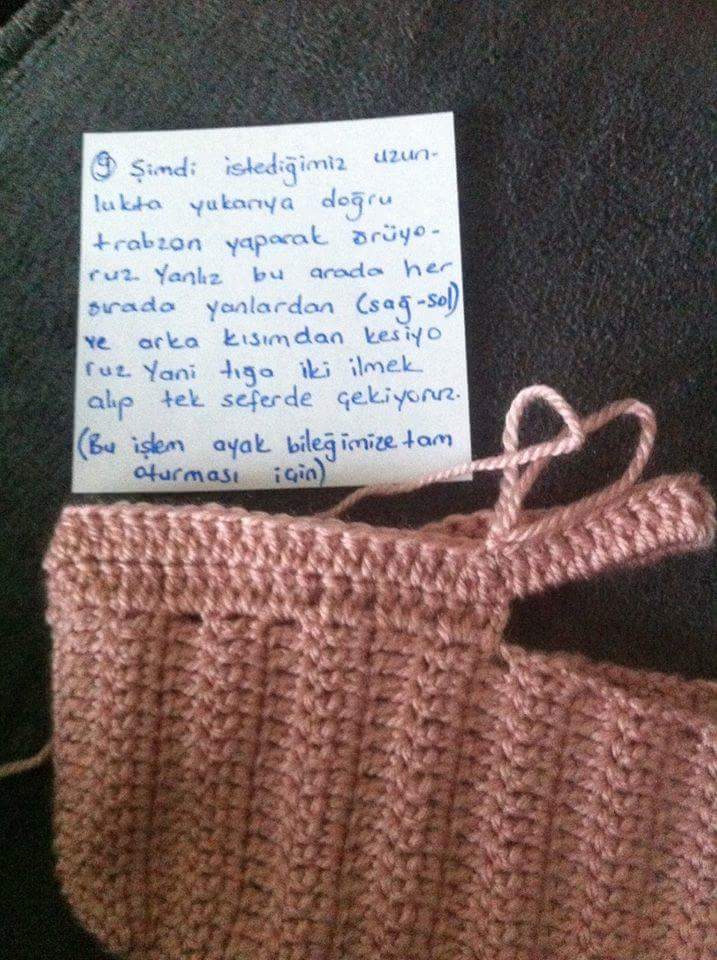 9 Şimdi istediğimiz uzun-
lukta yukarıya doğru
trabzan yaparak örüyo-
ruz. Yanlız bu arada her
sırada yanlardan (sağ-sol)
ve arka kısımdan kesiyo
ruz Yani tığa iki ilmek
alıp tek seferde çekiyoruz.
(Bu işlem ayak bileğimize tam
oturması için)